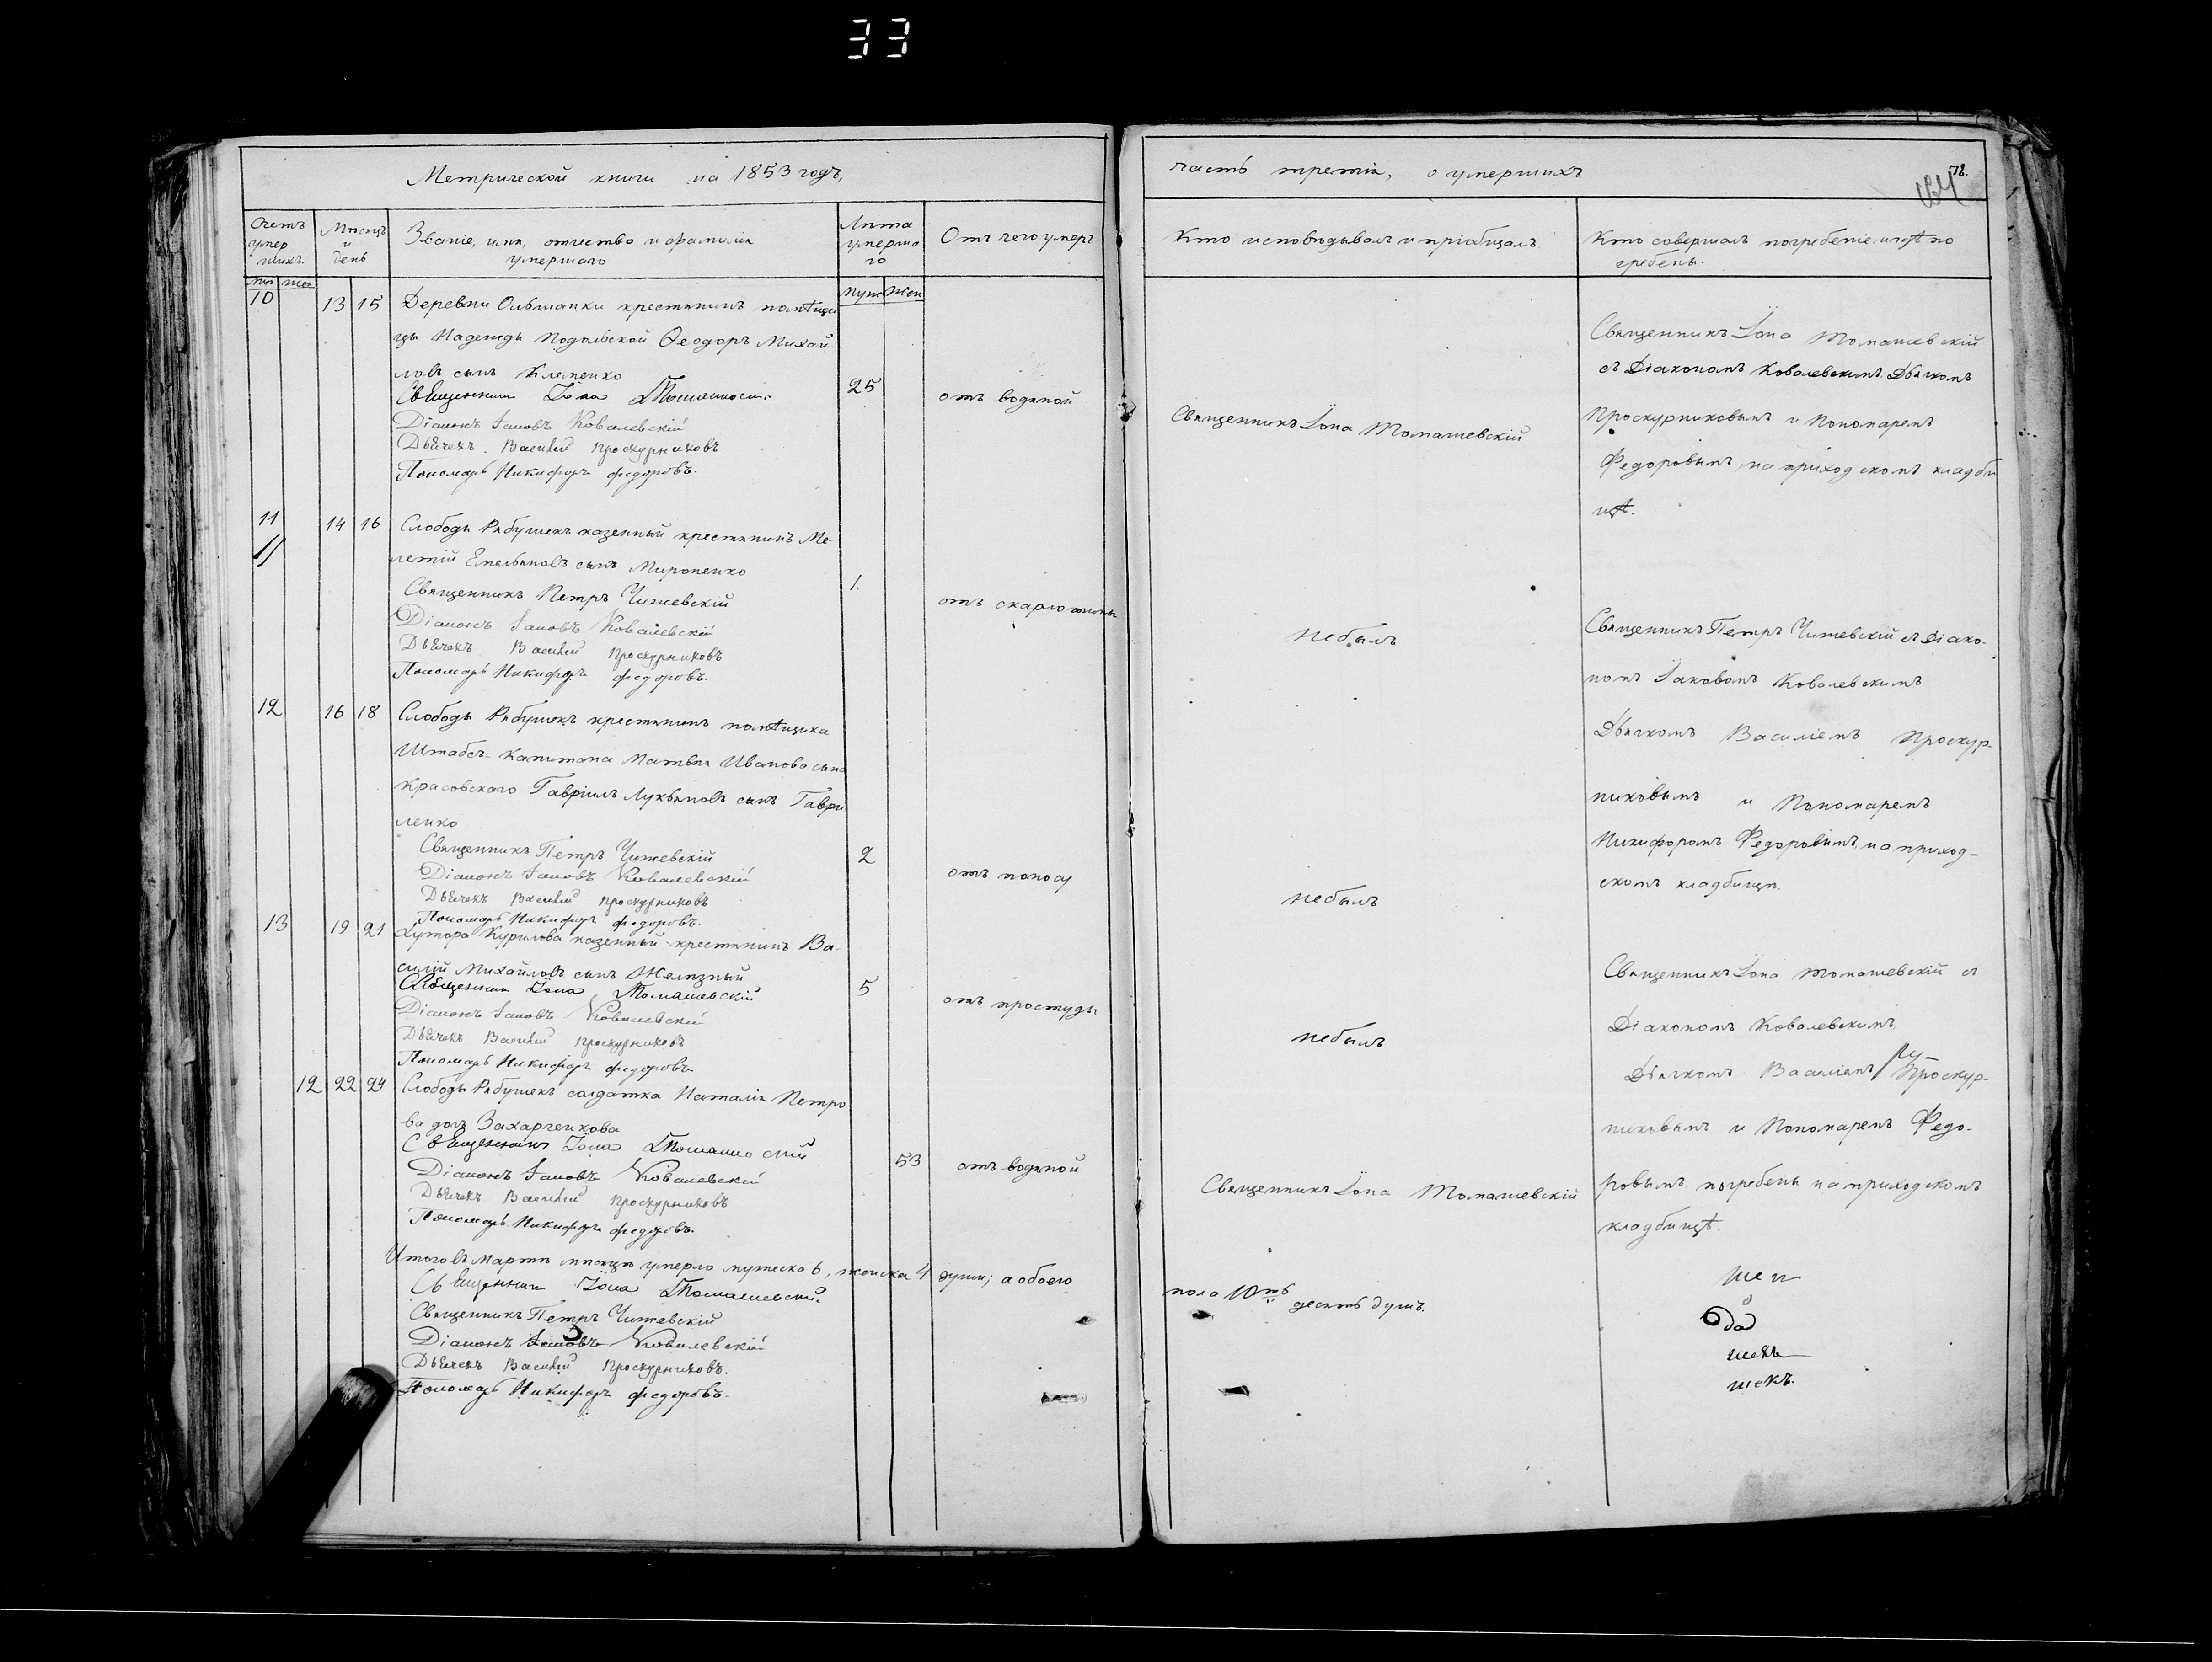 33
Метрической книги на 1853 годъ,
Счетъ умерших.
Мѣсяцъ и день
Званіе, имя, отчество и фамилія умершаго
Лѣта умершаго
Отъ чего умеръ
муж жен
муж жен
10 13 15 Деревни Ольшанки крестьянинъ помѣщи
цы Надежды Подольской Ѳеодоръ Михай
ловъ сынъ
Священникъ Іона Томашевскій
25
отъ водяной
Діаконъ Іаковъ Ковалевскій
Дьячекъ Василий Проскурниковъ
Пономарь Никифоръ Федоровъ.
11 14 16 Слободы Рябушекъ казенный крестьянинъ Ме-
летій Емельяновъ сынъ Мироненко
Священникъ Петръ Чижевскій
1.
отъ скарлотины
Діаконъ Іаковъ Ковалевскій
Дьячекъ Василий Проскурниковъ
Пономарь Никифоръ Федоровъ.
12 16 18 Слободы Рябушекъ крестьянинъ помѣщика
Штабсъ-Капитана Матвѣя Иванова сына
Красовскаго Гавріилъ Лукьяновъ сынъ Гаври
ленко
Священникъ Петръ Чижевскій
2
отъ поносу
Діаконъ Іаковъ Ковалевскій
Дьячекъ Василий Проскурниковъ
Пономарь Никифоръ Федоровъ.
13 19 21 Хутора Курилова казенный крестьянинъ Ва-
силій Михайловъ сынъ Желѣзный
Священникъ Іона Томашевскій
5
отъ простуды
Діаконъ Іаковъ Ковалевскій
Дьячекъ Василий Проскурниковъ
Пономарь Никифоръ Федоровъ
12 22 24 Слободы Рябушекъ солдатка Наталія Петро
ва дочь Захарченкова
Священникъ Іона Томашевскій
53
отъ водяной
Діаконъ Іаковъ Ковалевскій
Дьячекъ Василий Проскурниковъ
Пономарь Никифоръ Федоровъ.
Итого въ Мартѣ мѣсяцѣ умерло мужеска 6, женска 4 души; а обоего
Священникъ Іона Томашевскій
Священникъ Петръ Чижевскій
Діаконъ Іаковъ Ковалевскій
Дьячекъ Василий Проскурниковъ.
Пономарь Никифоръ Федоровъ.
часть третія, о умершихъ
78.
Кто исповѣдывалъ и пріобщалъ
Кто совершалъ погребеніе и гдѣ по
гребены.
Священникъ Іона Томашевскій
съ Діакономъ Ковалевскимъ Дьячкомъ
Священникъ Іона Томашевскій
Проскурниковымъ и Пономаремъ
Федоровымъ, на приходскомъ кладби
щѣ.
небылъ
Священникъ Петръ Чижевскій съ Діако-
номъ Іаковомъ Ковалевскимъ
Дьячкомъ Василіемъ Проскур-
никовымъ и Пономаремъ
Никифоромъ Федоровымъ, на приход-
скомъ кладбищѣ.
небылъ
Священникъ Іона Томашевскій съ
Діакономъ Ковалевскимъ
небылъ
Дьячкомъ Василіемъ Проскур-
никовымъ и Пономаремъ Федо-
Священникъ Іона Томашевскій
ровымъ погребены на приходскомъ
кладбищѣ.
пола 10ть десять душъ.